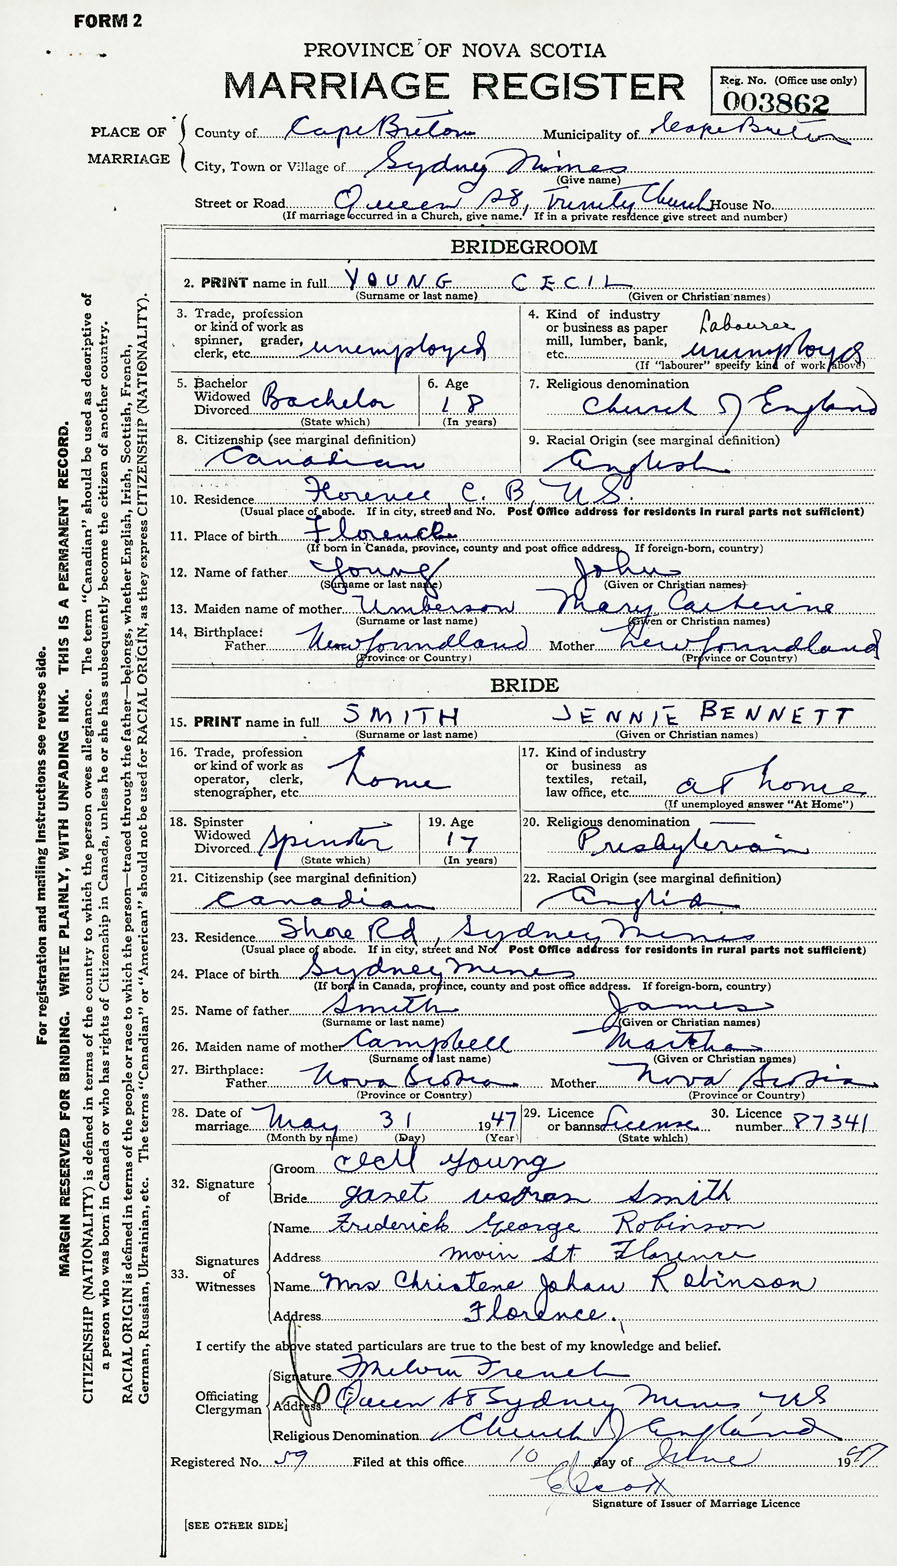 FORM 2
PROVINCE OF NOVA SCOTIA
MARRIAGE REGISTER
Reg. No. (Office use only)
003862
PLACE OF MARRIAGE
County of Cape Breton Municipality of Cape Breton
City, Town or Village of Sydney Mines
(Give name)
Street or Road Queen St, Trinity Church House No.
(If marriage occurred in a Church, give name. If in a private residence give street and number)
BRIDEGROOM
2. PRINT name in full YOUNG CECIL
(Surname or last name) (Given or Christian names)
3. Trade, profession or kind of work as spinner, grader, clerk, etc. unemployed
4. Kind of industry or business as paper mill, lumber, bank, etc. Labourer unemployed
(If "labourer" specify kind of work above)
5. Bachelor Widowed Divorced Bachelor
(State which)
6. Age 18
(In years)
7. Religious denomination
Church of England
8. Citizenship (see marginal definition)
Canadian
9. Racial Origin (see marginal definition)
English
10. Residence Florence C. B. N.S.
(Usual place of abode. If in city, street and No. Post Office address for residents in rural parts not sufficient)
11. Place of birth Florence
(If born in Canada, province, county and post office address. If foreign-born, country)
12. Name of father Young John
(Surname or last name) (Given or Christian names)
13. Maiden name of mother Umberson Mary Catherine
(Surname or last name) (Given or Christian names)
14. Birthplace: Father Newfoundland Mother Newfoundland
(Province or Country) (Province or Country)
BRIDE
15. PRINT name in full SMITH JENNIE BENNETT
(Surname or last name) (Given or Christian names)
16. Trade, profession or kind of work as operator, clerk, stenographer, etc. home
17. Kind of industry or business as textiles, retail, law office, etc. at home
(If unemployed answer "At Home")
18. Spinster Widowed Divorced Spinster
(State which)
19. Age 17
(In years)
20. Religious denomination
Presbyterian
21. Citizenship (see marginal definition)
Canadian
22. Racial Origin (see marginal definition)
23. Residence Shore Rd, Sydney Mines
(Usual place of abode. If in city, street and No. Post Office address for residents in rural parts not sufficient)
24. Place of birth Sydney Mines
(If born in Canada, province, county and post office address. If foreign-born, country)
25. Name of father Smith James
(Surname or last name) (Given or Christian names)
26. Maiden name of mother Campbell Martha
(Surname or last name) (Given or Christian names)
27. Birthplace: Father Nova Scotia Mother Nova Scotia
(Province or Country) (Province or Country)
28. Date of marriage May 31 1947
(Month by name) (Day) (Year)
29. Licence or banns License
(State which)
30. Licence number 87341
32. Signature of
Groom Cecil Young
Bride Janet Smith
33. Signatures of Witnesses
Name Frederick George Robinson
Address Main St Florence
Name Mrs Christene Johan Robinson
Address Florence.
I certify the above stated particulars are true to the best of my knowledge and belief.
Officiating Clergyman
Signature Melvin French
Address Queen St Sydney Mines, NS
Religious Denomination Church of England
Registered No. 59 Filed at this office 10 day of June 1947
E Scott
Signature of Issuer of Marriage Licence
[SEE OTHER SIDE]
For registration and mailing instructions see reverse side.
MARGIN RESERVED FOR BINDING. WRITE PLAINLY, WITH UNFADING INK. THIS IS A PERMANENT RECORD.
CITIZENSHIP (NATIONALITY) is defined in terms of the country to which the person owes allegiance. The term "Canadian" should be used as descriptive of
a person who was born in Canada or who has rights of Citizenship in Canada, unless he or she has subsequently become the citizen of another country.
RACIAL ORIGIN is defined in terms of the people or race to which the person—traced through the father—belongs, whether English, Irish, Scottish, French,
German, Russian, Ukrainian, etc. The terms "Canadian" or "American" should not be used for RACIAL ORIGIN, as they express CITIZENSHIP (NATIONALITY).